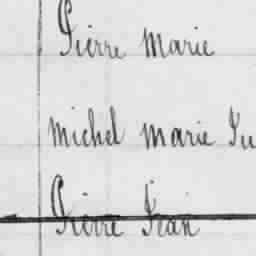 Pierre Marie
Michel Marie
Pierre Jean